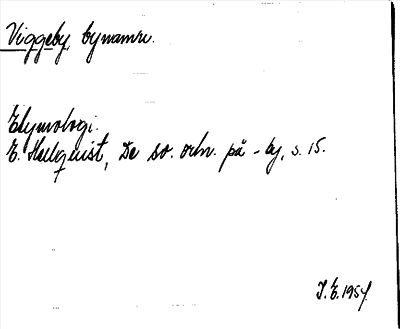 Viggeby, bynamn.
Etymologi.
E. Hellquist, De sv. ortn. på -by, s. 15.
I.E. 1954